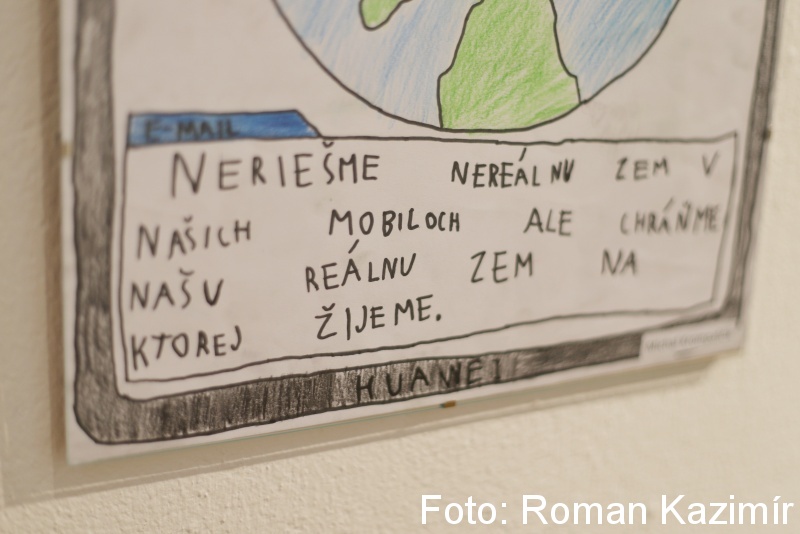 E-MAIL
NERIEŠME NEREÁLNU ZEM V
NAŠICH MOBILOCH ALE CHRÁŇME
NAŠU REÁLNU ZEM NA
KTOREJ ŽIJEME.
HUAWEI
Foto: Roman Kazimír